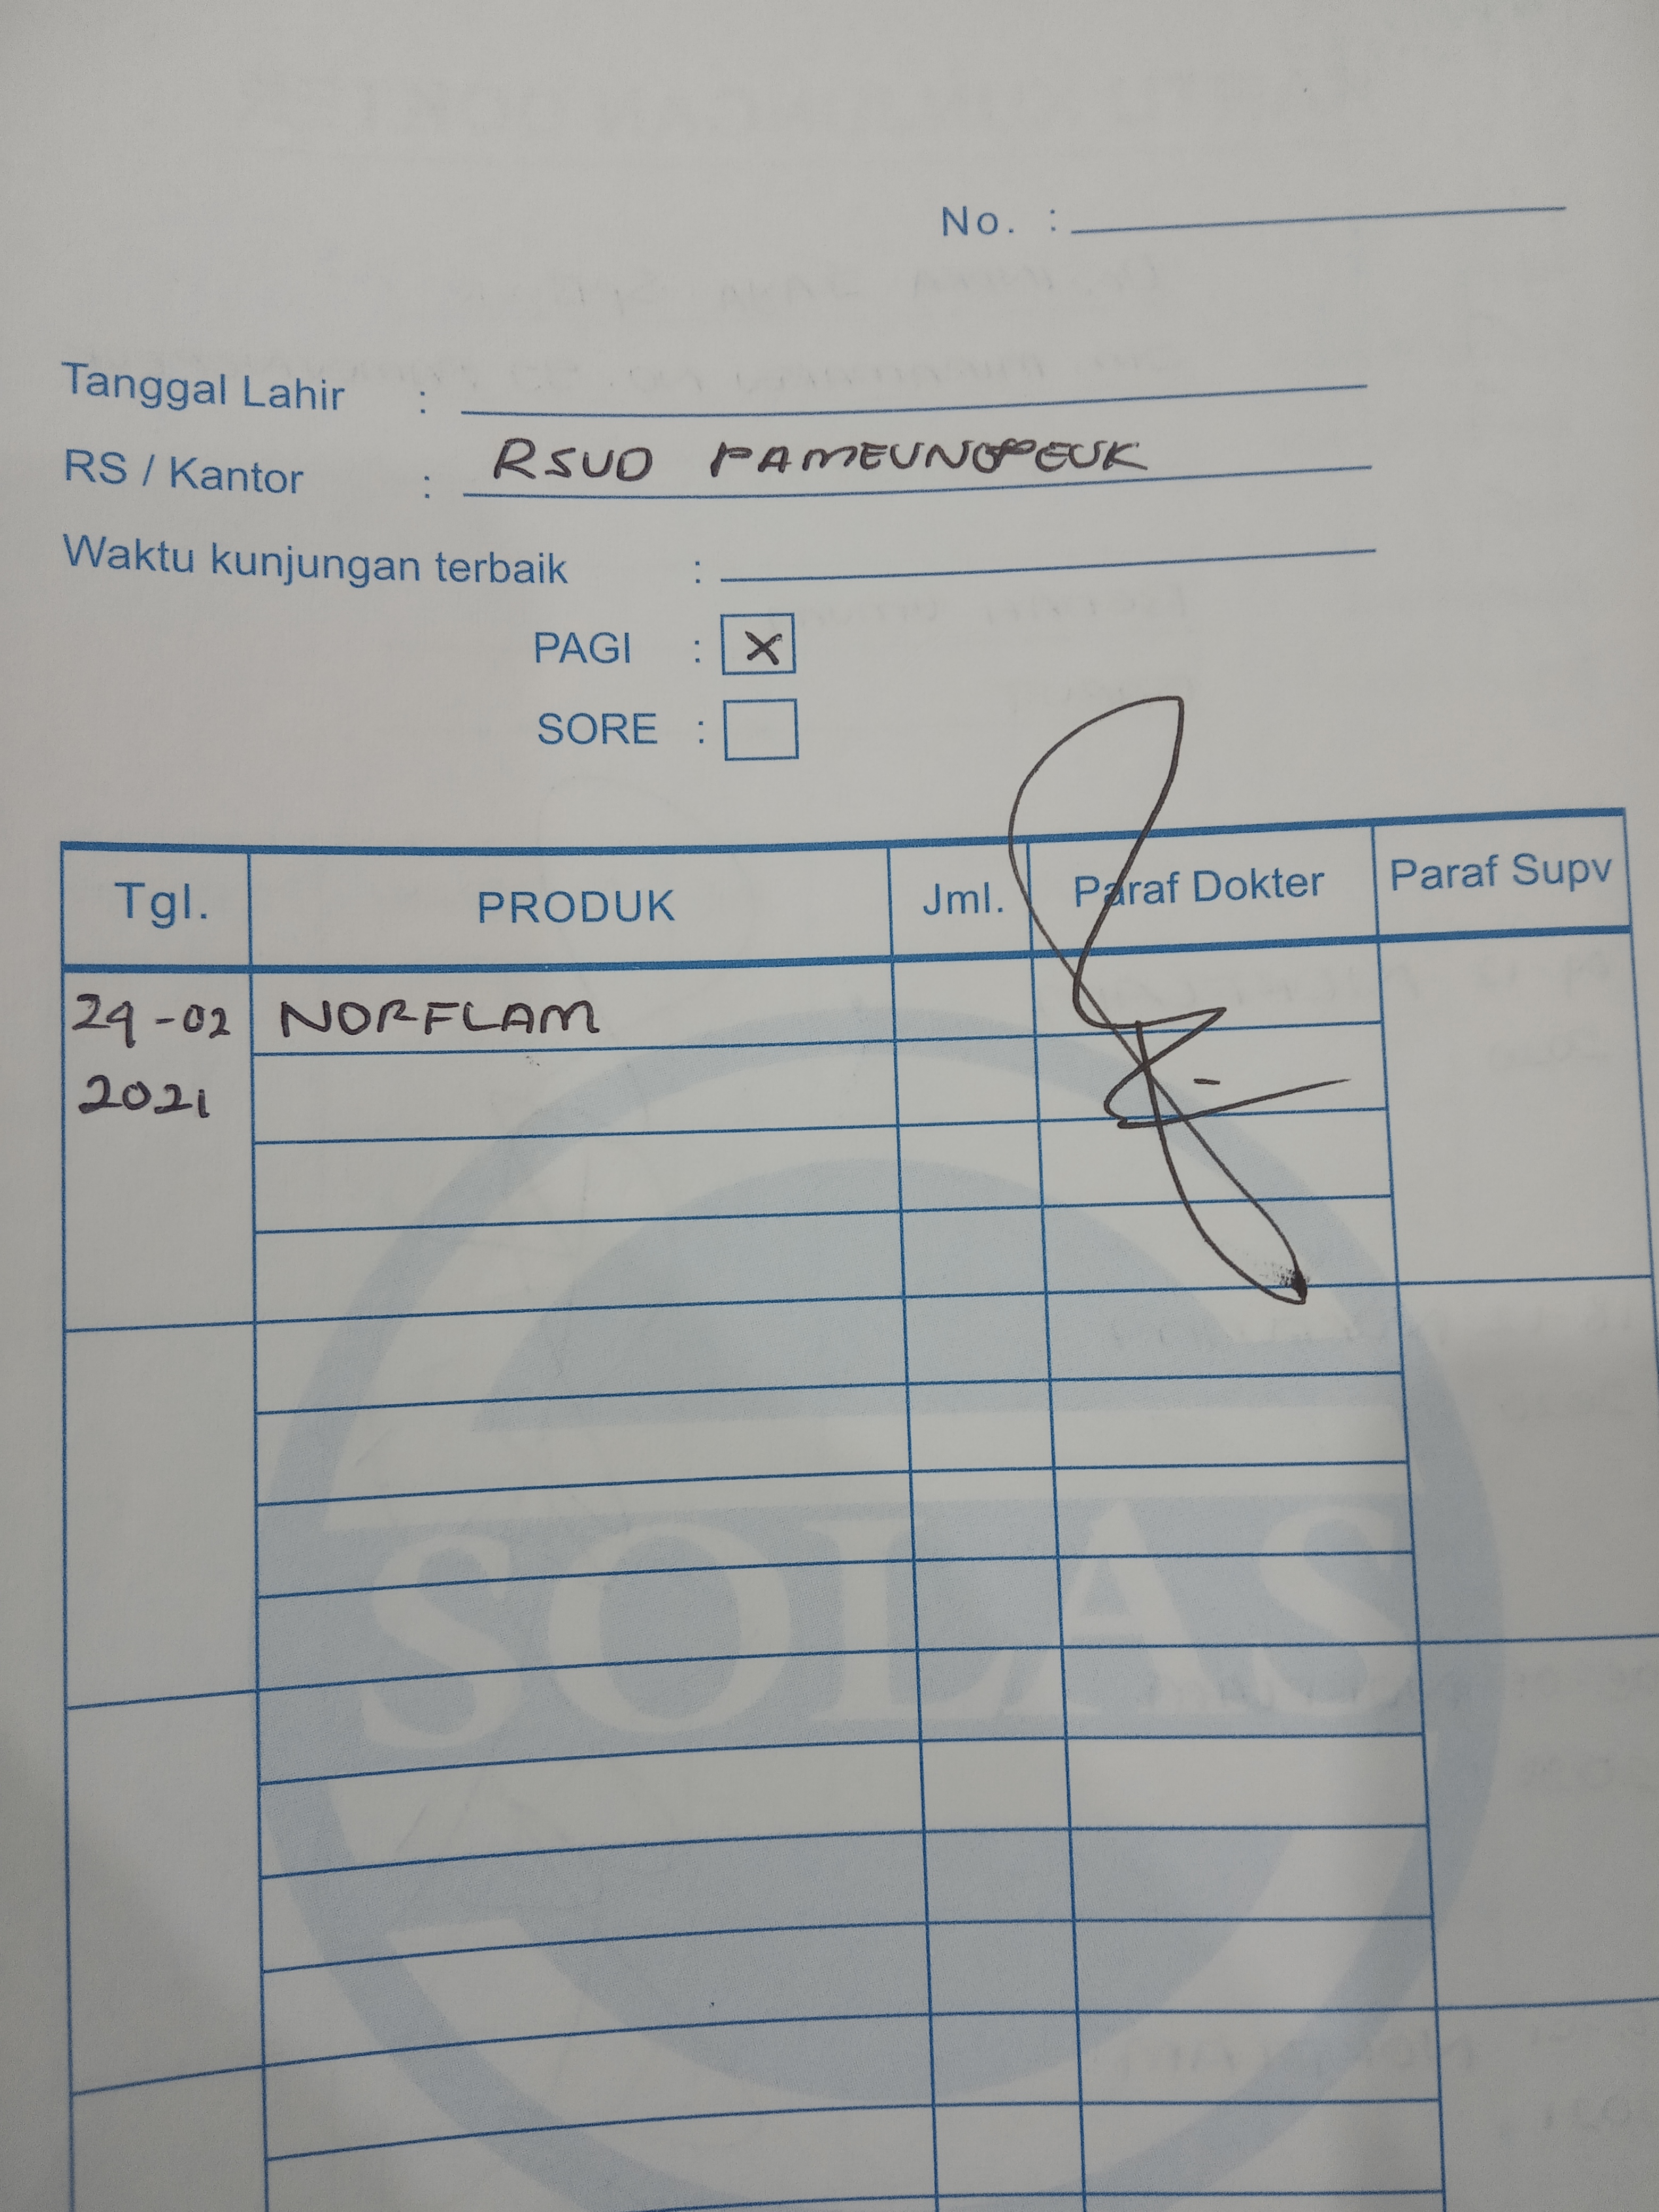 No. :
Tanggal Lahir :
RS / Kantor : RSUD PAMEUNGPEUK
Waktu kunjungan terbaik :
PAGI : X
SORE :
Tgl. PRODUK Jml. Paraf Dokter Paraf Supv
29-02 NORFLAM
2021
SOLAS